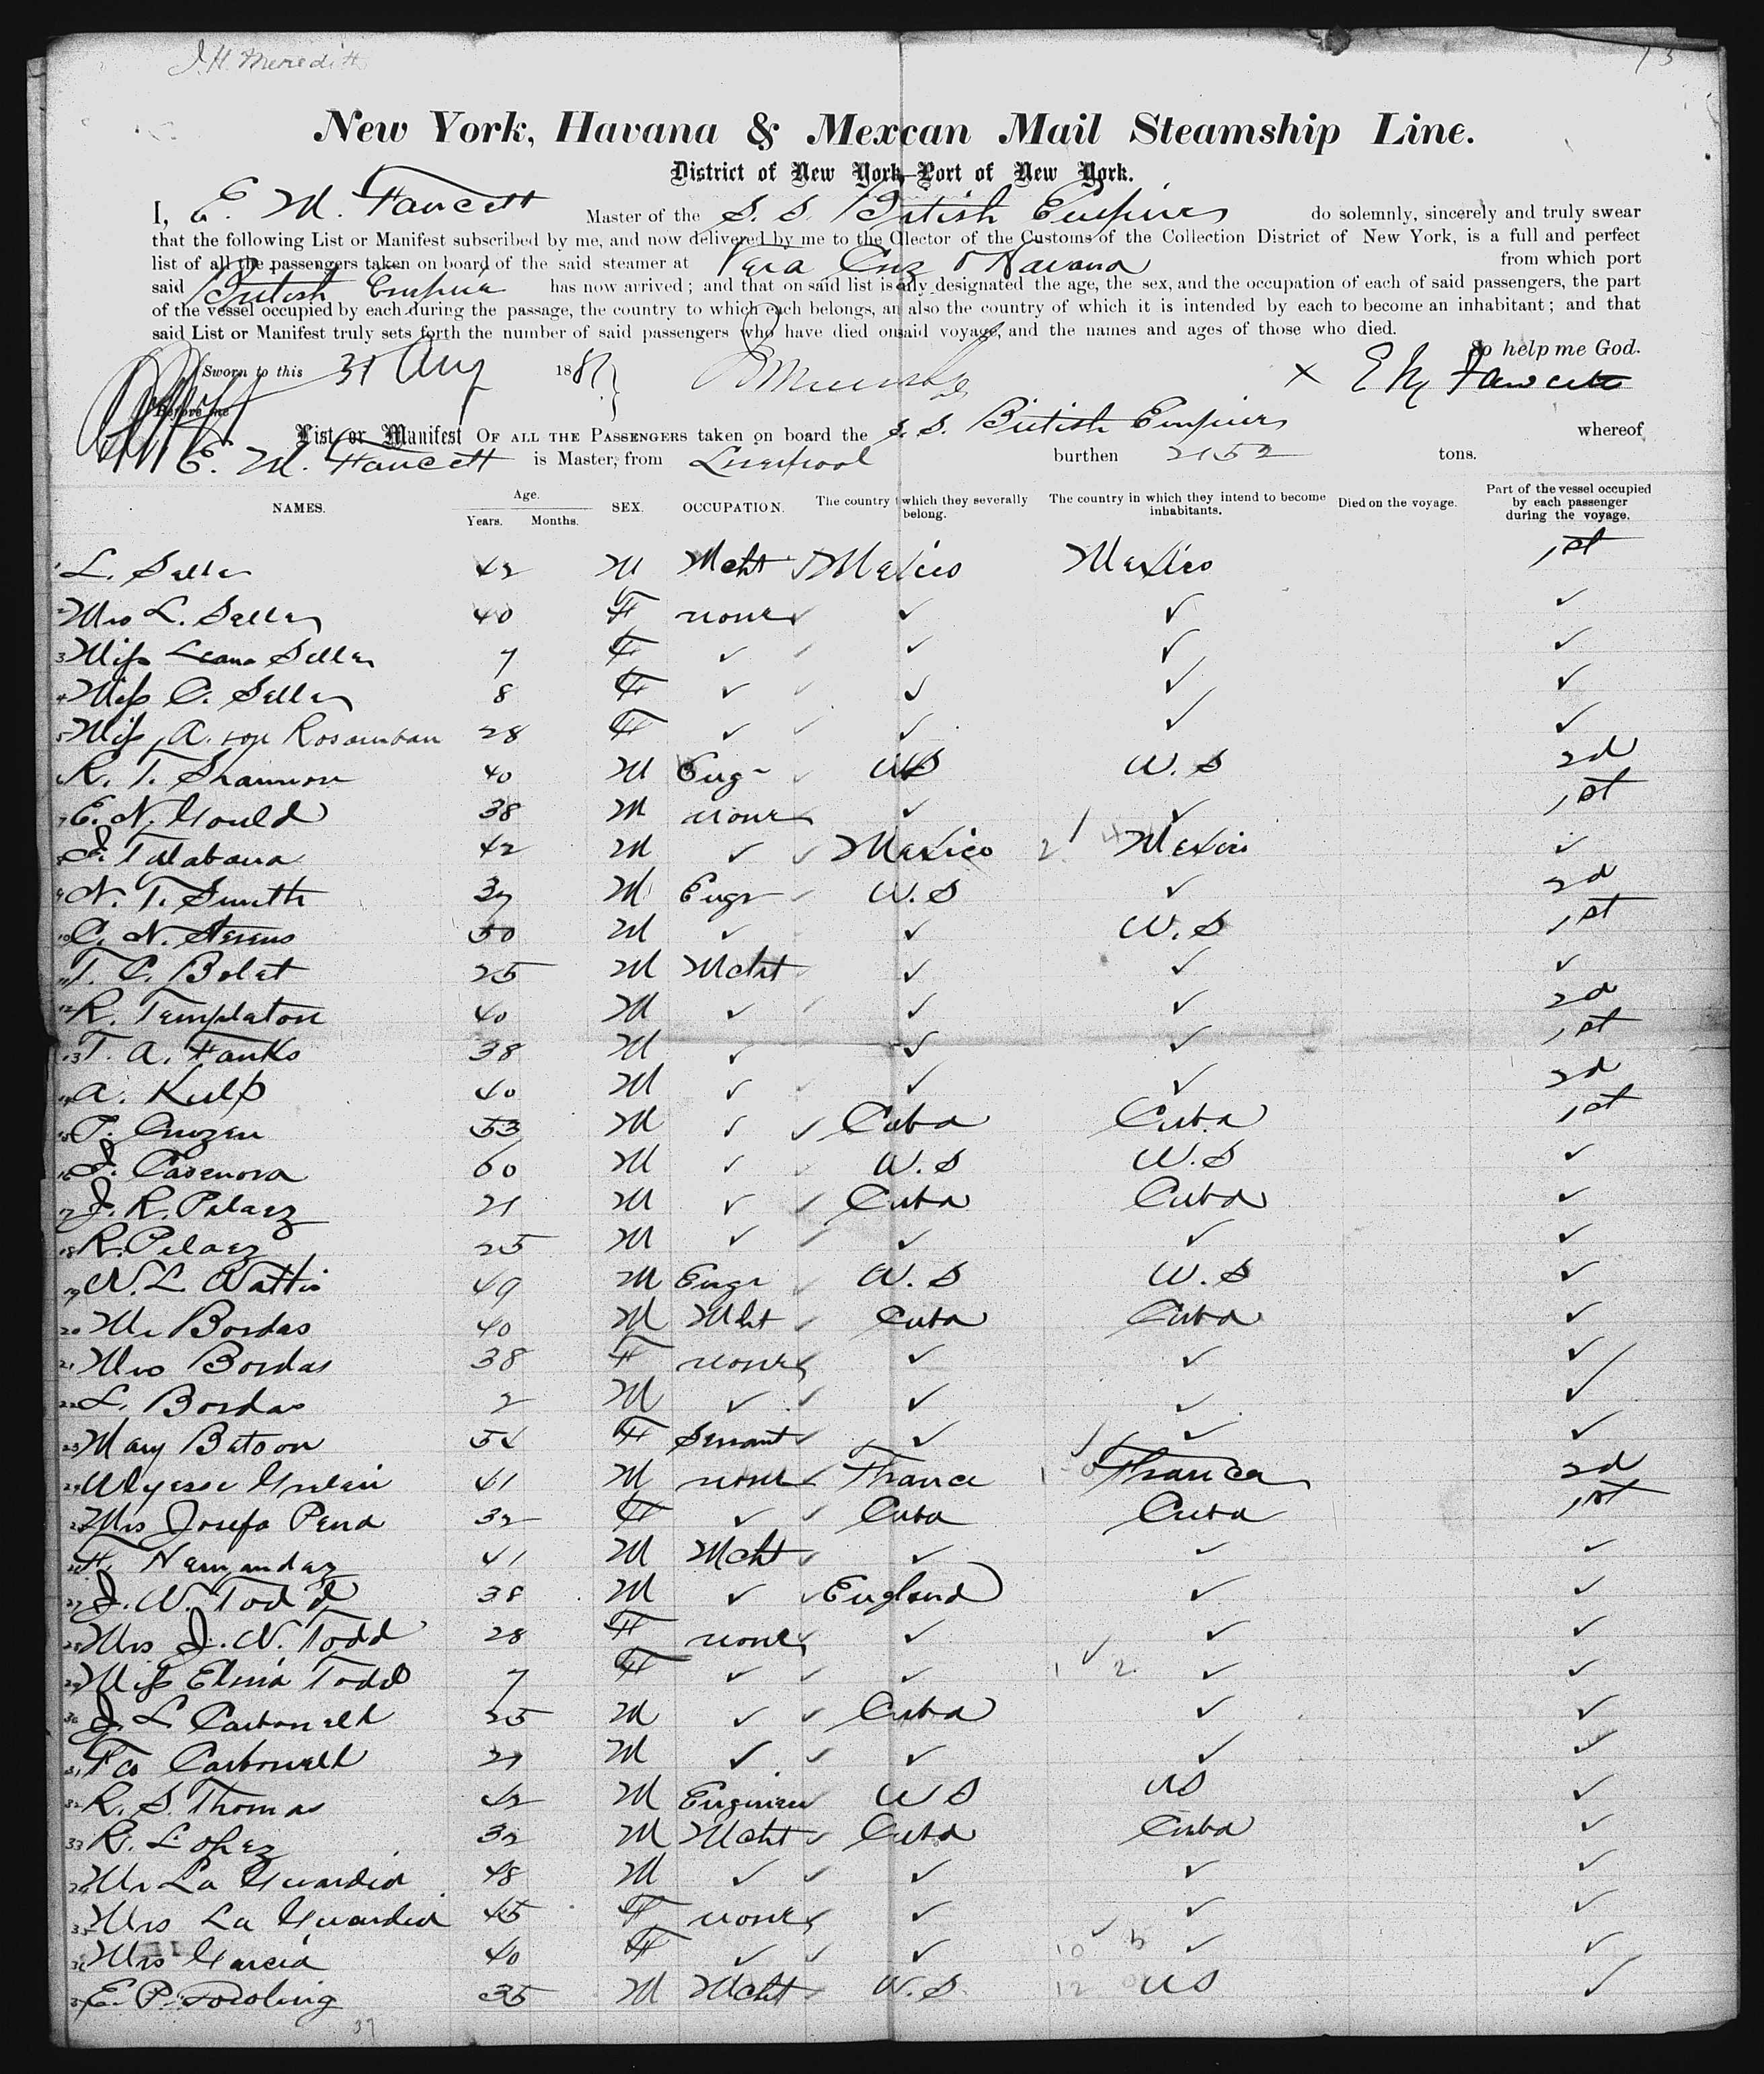 J. H. Meredith
13
New York, Havana & Mexcan Mail Steamship Line.
District of New York Port of New York.
I, E. M. Fawcett Master of the S. S. British Empire do solemnly, sincerely and truly swear
that the following List or Manifest subscribed by me, and now delivered by me to the Cllector of the Customs of the Collection District of New York, is a full and perfect
list of all the passengers taken on board of the said steamer at Vera Cruz & Havana from which port
said British Empire has now arrived; and that on said list is designated the age, the sex, and the occupation of each of said passengers, the part
of the vessel occupied by each during the passage, the country to which each belongs, an also the country of which it is intended by each to become an inhabitant; and that
said List or Manifest truly sets forth the number of said passengers who have died on said voyage, and the names and ages of those who died.
So help me God.
Sworn to this 31 Aug 188 × E M Fawcett
Before me
List or Manifest OF ALL THE PASSENGERS taken on board the S. S. British Empire whereof
E. M. Fawcett is Master, from Liverpool burthen 2152 tons.
NAMES. Age. Years. Months. SEX. OCCUPATION. The country t which they severally belong. The country in which they intend to become inhabitants. Died on the voyage. Part of the vessel occupied by each passenger during the voyage.
1 L. Seller 42 M Mcht ✓ Mexico Mexico 1st
2 Mrs L. Seller 40 F none ✓ ✓ ✓ ✓
3 Miss Leana Seller 7 F ✓ ✓ ✓ ✓ ✓
4 Miss C. Seller 8 F ✓ ✓ ✓ ✓ ✓
5 Miss A. von 28 F ✓ ✓ ✓ ✓ ✓
6 R. T. Shannon 40 M Eng ✓ US U.S 2d
7 E. N. Gould 38 M none ✓ ✓ 1st
8 J. Talabana 42 M ✓ ✓ Mexico Mexico ✓
9 N. T. Smith 37 M Engr ✓ U.S ✓ 2d
10 C. N. Stevens 50 M ✓ ✓ U.S 1st
11 T. C. Bolet 25 M Mcht ✓ ✓ ✓
12 R. Templeton 40 M ✓ ✓ ✓ ✓ 2d
13 T. A. Hanks 38 M ✓ ✓ ✓ ✓ 1st
14 A. Kulp 40 M ✓ ✓ ✓ ✓ 2d
15 P. 53 M ✓ ✓ Cuba Cuba 1st
16 J. Casenova 60 M ✓ ✓ U.S U.S ✓
17 J. R. Pelaez 21 M ✓ ✓ Cuba Cuba ✓
18 R. Pelaez 25 M ✓ ✓ ✓ ✓ ✓
19 N. L. Wattis 49 M Engr ✓ U.S U.S ✓
20 Mr Bordas 40 M Mht ✓ Cuba Cuba ✓
21 Mrs Bordas 38 F none ✓ ✓ ✓ ✓
22 L. Bordas 2 M ✓ ✓ ✓ ✓ ✓
23 Mary Batson 54 F Servant ✓ ✓ ✓ ✓
24 41 M none ✓ France France 2d
25 Mrs Josefa Pena 32 F ✓ ✓ Cuba Cuba 1st
26 H. Hernandez 41 M Mcht ✓ ✓ ✓ ✓
27 J. W. Todd 38 M ✓ ✓ England ✓ ✓
28 Mrs J. W. Todd 28 F none ✓ ✓ ✓ ✓
29 Miss Elmia Todd 7 F ✓ ✓ ✓ ✓ ✓
30 J. L. Carbonell 25 M ✓ ✓ Cuba ✓ ✓
31 Fco Carbonell 21 M ✓ ✓ ✓ ✓ ✓
32 R. S. Thomas 42 M Engineer ✓ U S US ✓
33 R. Lopez 32 M Mcht ✓ Cuba Cuba ✓
34 Mr La Guardia 48 M ✓ ✓ ✓ ✓ ✓
35 Mrs La Guardia 45 F none ✓ ✓ ✓ ✓
36 Mrs Garcia 40 F ✓ ✓ ✓ ✓ ✓
37 E. P. 35 M Mcht ✓ U.S. US ✓
37